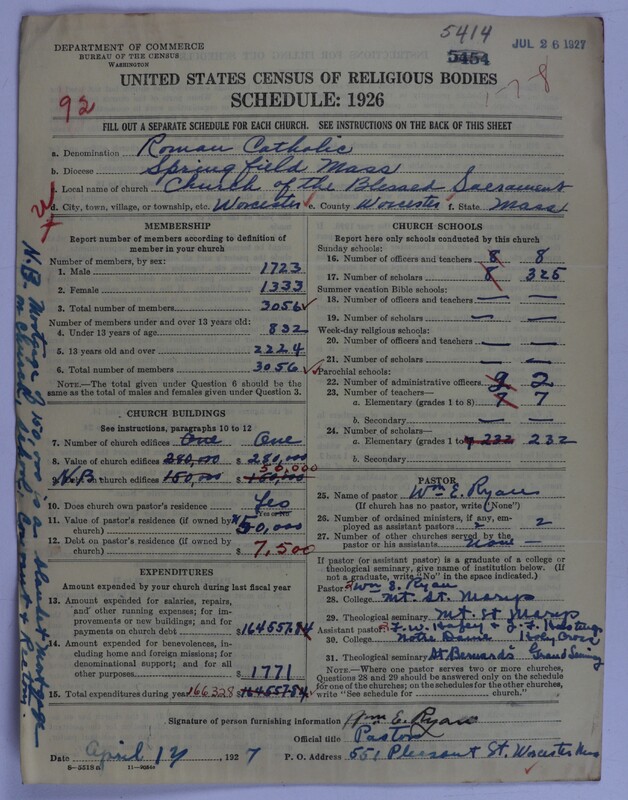 5414
5454
JUL 26 1927
DEPARTMENT OF COMMERCE
BUREAU OF THE CENSUS
WASHINGTON
1-7-8
UNITED STATES CENSUS OF RELIGIOUS BODIES
SCHEDULE: 1926
92
FILL OUT A SEPARATE SCHEDULE FOR EACH CHURCH. SEE INSTRUCTIONS ON THE BACK OF THIS SHEET
a. Denomination Roman Catholic
b. Diocese Springfield Mass
c. Local name of church Church of the Blessed Sacrament
d. City, town, village, or township, etc. Worcester e. County Worcester f. State Mass
MEMBERSHIP
Report number of members according to definition of
member in your church
Number of members, by sex:
1. Male 1723
2. Female 1333
3. Total number of members 3056
Number of members under and over 13 years old:
4. Under 13 years of age 832
5. 13 years old and over 2224
6. Total number of members 3056
NOTE.—The total given under Question 6 should be the
same as the total of males and females given under Question 3.
CHURCH BUILDINGS
See instructions, paragraphs 10 to 12
7. Number of church edifices One One
8. Value of church edifices 280,000 $ 280,000
50,000
9. Debt on church edifices 150,000 $ 150,000
N.B.
10. Does church own pastor's residence? Yes
Yes or No
11. Value of pastor's residence (if owned by
church) $ 50,000
12. Debt on pastor's residence (if owned by
church) $ 7,500
EXPENDITURES
Amount expended by your church during last fiscal year
13. Amount expended for salaries, repairs,
and other running expenses; for im-
provements or new buildings; and for
payments on church debt $ 164557.84
14. Amount expended for benevolences, in-
cluding home and foreign missions; for
denominational support; and for all
other purposes $ 1771
15. Total expenditures during year 166328 $ 164557.84
CHURCH SCHOOLS
Report here only schools conducted by this church
Sunday schools:
16. Number of officers and teachers 8 8
17. Number of scholars 8 325
Summer vacation Bible schools:
18. Number of officers and teachers — —
19. Number of scholars — —
Week-day religious schools:
20. Number of officers and teachers — —
21. Number of scholars — —
Parochial schools:
22. Number of administrative officers 2 2
23. Number of teachers—
a. Elementary (grades 1 to 8) 7 7
b. Secondary — —
24. Number of scholars—
a. Elementary (grades 1 to 8) 232 232
b. Secondary
PASTOR
25. Name of pastor Wm E. Ryan
(If church has no pastor, write "None")
26. Number of ordained ministers, if any, em-
ployed as assistant pastors 2 2
27. Number of other churches served by the
pastor or his assistants None —
If pastor (or assistant pastor) is a graduate of a college or
theological seminary, give name of institution below. (If
not a graduate, write "No" in the space indicated.)
Pastor: Wm E. Ryan
28. College Mt. St. Marys
29. Theological seminary Mt. St Marys
Assistant pastor:
30. College Notre Dame Holy Cross
31. Theological seminary St Bernards Grand Seminy
NOTE.—Where one pastor serves two or more churches,
Questions 28 and 29 should be answered only on the schedule
for one of the churches; on the schedules for the other churches,
write "See schedule for church."
Signature of person furnishing information Wm E. Ryan
Official title Pastor
Date April 12, 1927 P. O. Address 551 Pleasant St. Worcester Mass
6—5518 R 11—9084a
N.B. Mortgage of 150,000 is a blanket mortgage
on church, school, convent & Rectory.